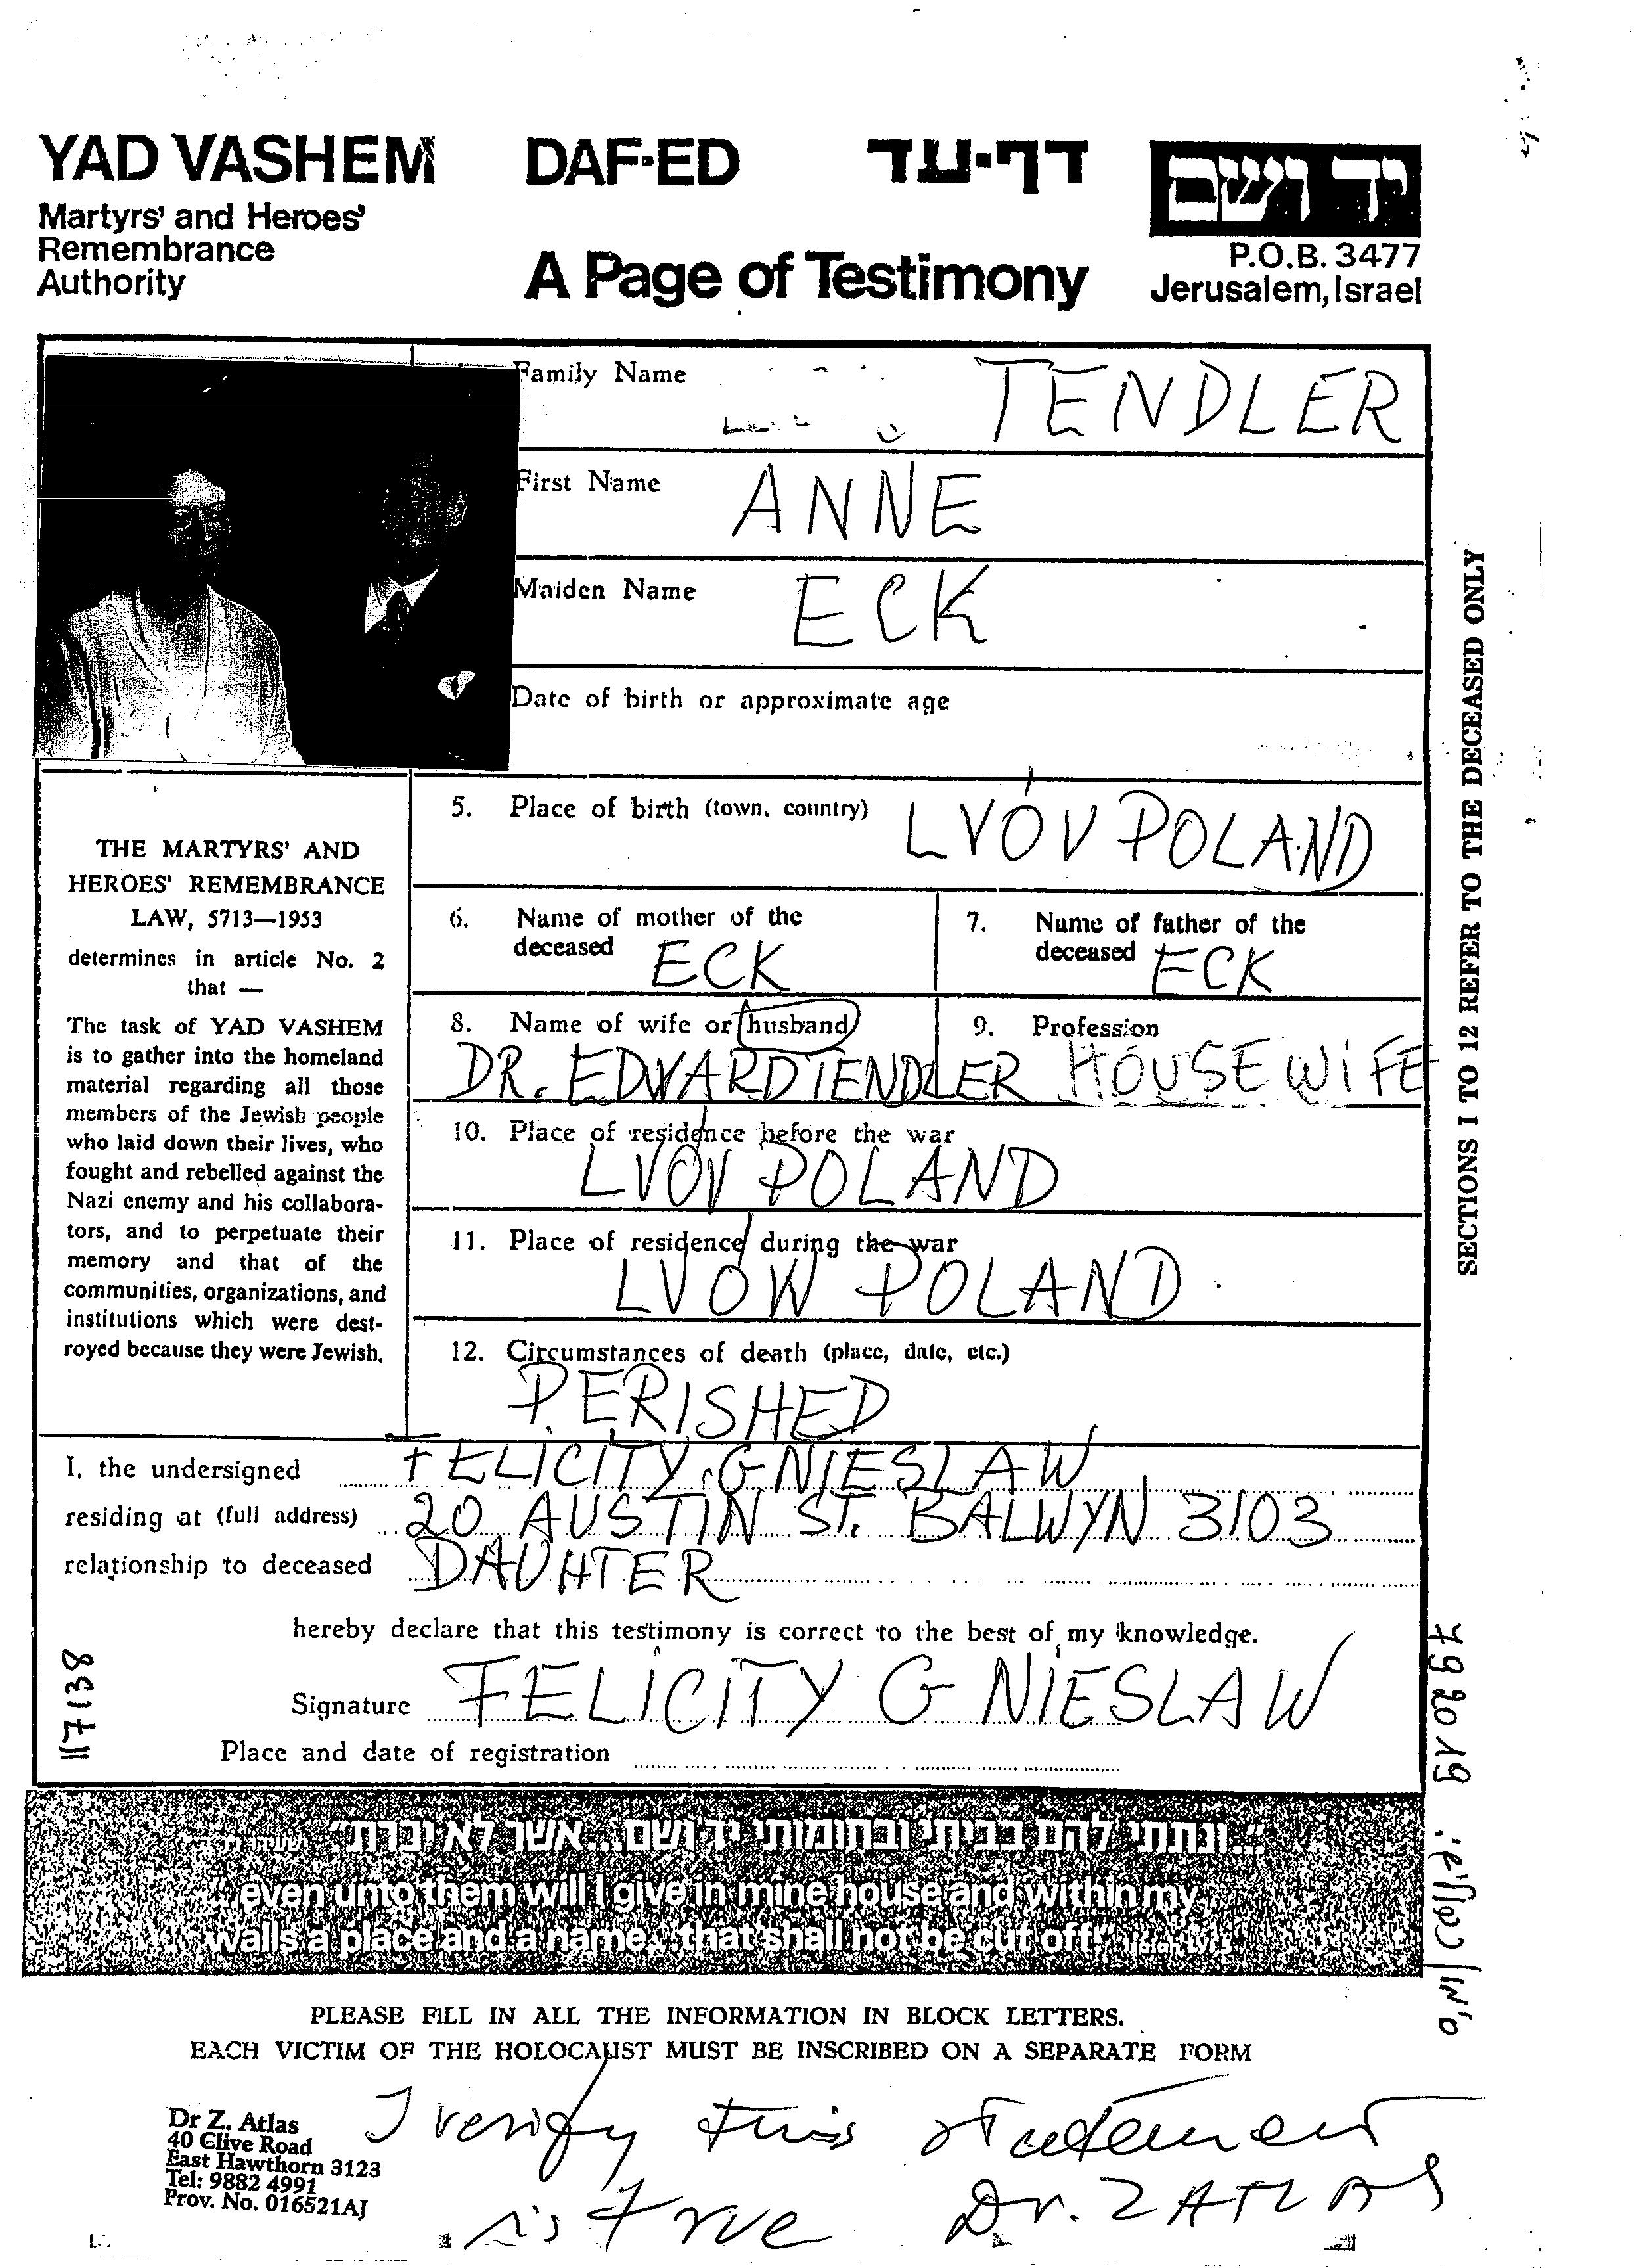 YAD VASHEM
Martyrs' and Heroes'
Remembrance
Authority
DAF-ED
דף-עד
A Page of Testimony
יד ושם
P.O.B. 3477
Jerusalem, Israel
Family Name TENDLER
First Name ANNE
Maiden Name ECK
Date of birth or approximate age
5. Place of birth (town, country) LVOV POLAND
6. Name of mother of the deceased ECK
7. Name of father of the deceased ECK
8. Name of wife or husband
DR. EDWARD TENDLER
9. Profession
HOUSEWIFE
10. Place of residence before the war
LVOV POLAND
11. Place of residence during the war
LVOW POLAND
12. Circumstances of death (place, date, etc.)
PERISHED
THE MARTYRS' AND
HEROES' REMEMBRANCE
LAW, 5713—1953
determines in article No. 2
that —
The task of YAD VASHEM
is to gather into the homeland
material regarding all those
members of the Jewish people
who laid down their lives, who
fought and rebelled against the
Nazi enemy and his collabora-
tors, and to perpetuate their
memory and that of the
communities, organizations, and
institutions which were dest-
royed because they were Jewish.
SECTIONS 1 TO 12 REFER TO THE DECEASED ONLY
I, the undersigned FELICITY GNIESLAW
residing at (full address) 20 AUSTIN ST. BALWYN 3103
relationship to deceased DAUHTER
hereby declare that this testimony is correct to the best of my knowledge.
Signature FELICITY GNIESLAW
Place and date of registration
117138
"...ונתתי להם בביתי ובחומותי יד ושם...אשר לא יכרת"
"...even unto them will I give in mine house and within my
walls a place and a name...that shall not be cut off."
PLEASE FILL IN ALL THE INFORMATION IN BLOCK LETTERS.
EACH VICTIM OF THE HOLOCAUST MUST BE INSCRIBED ON A SEPARATE FORM
Dr Z. Atlas
40 Clive Road
East Hawthorn 3123
Tel: 9882 4991
Prov. No. 016521AJ
I verify this statement
is true Dr. Z ATLAS